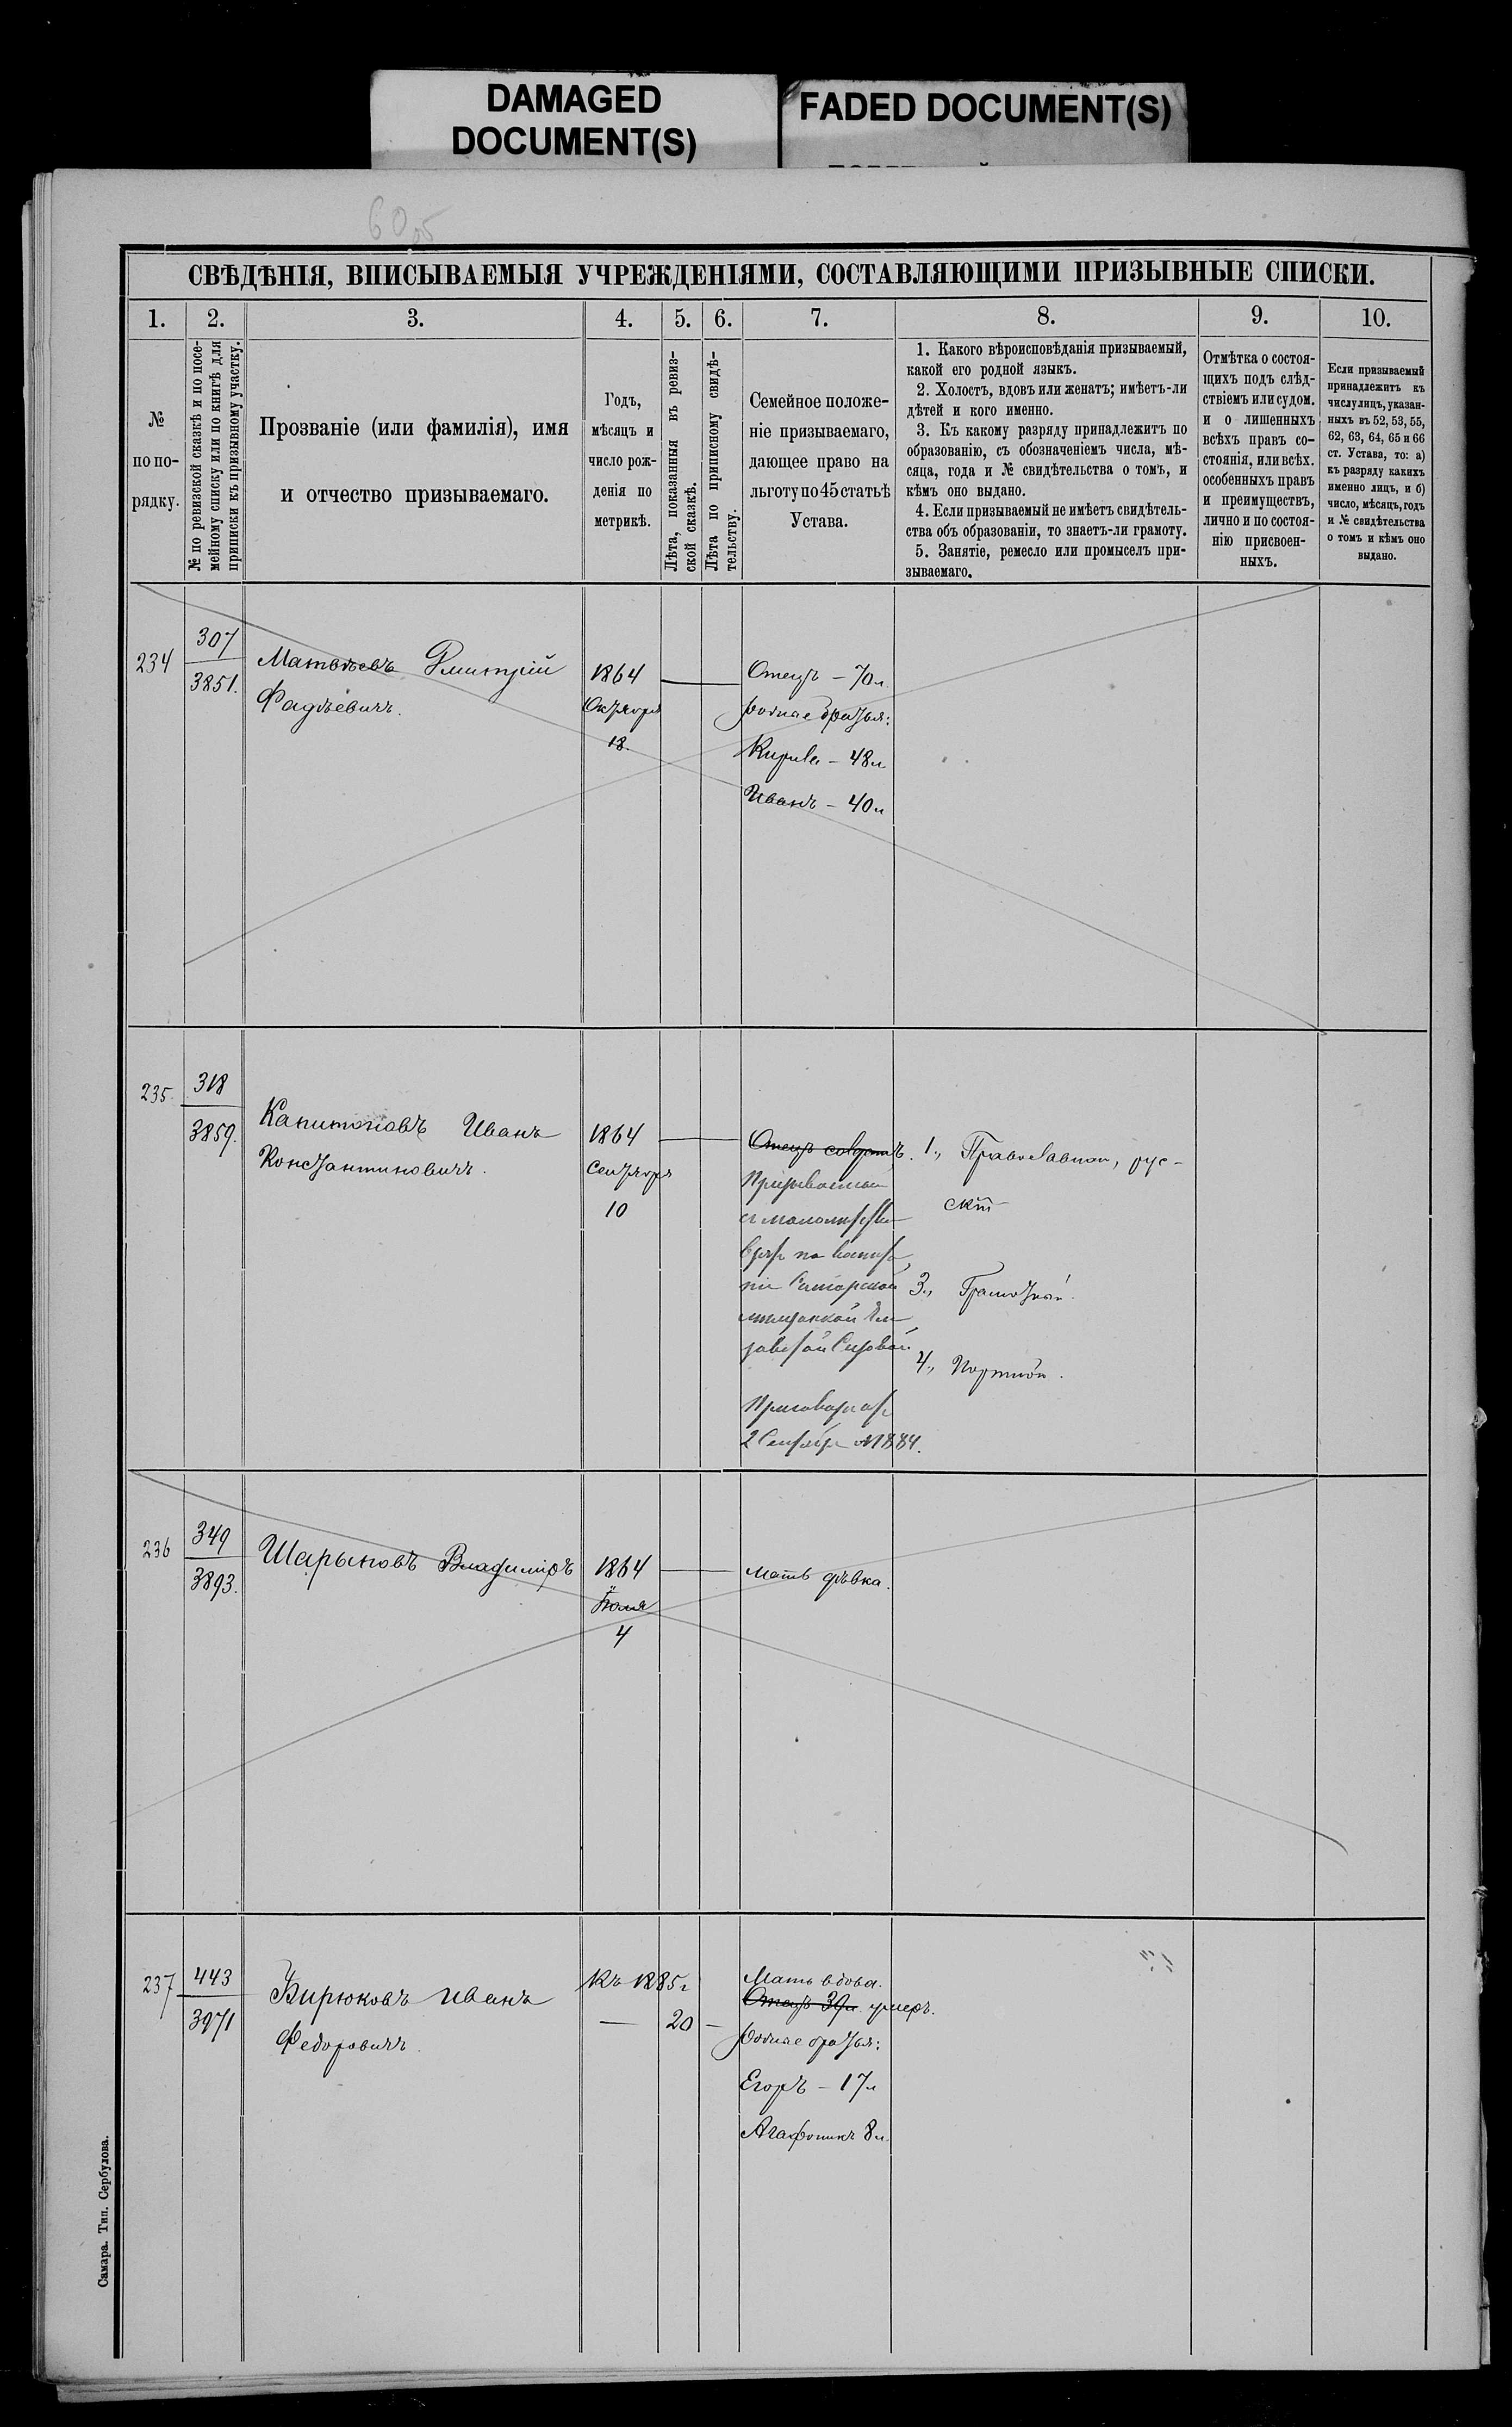 DAMAGED
DOCUMENT(S)
FADED DOCUMENT(S)
СВѢДѢНІЯ, ВПИСЫВАЕМЫЯ УЧРЕЖДЕНІЯМИ, СОСТАВЛЯЮЩИМИ ПРИЗЫВНЫЕ СПИСКИ.
1.
2.
3.
4.
5.
6.
7.
8.
9.
10.
№
по по-
рядку.
№ по ревизской сказкѣ и по посе-
мейному списку или по книгѣ для
приписки къ призывному участку.
Прозваніе (или фамилія), имя
и отчество призываемаго.
Годъ,
мѣсяцъ и
число рож-
денія по
метрикѣ.
Лѣта, показанныя въ ревиз-
ской сказкѣ.
Лѣта по приписному свидѣ-
тельству.
Семейное положе-
ніе призываемаго,
дающее право на
льготу по 45 статьѣ
Устава.
1. Какого вѣроисповѣданія призываемый,
какой его родной языкъ.
2. Холостъ, вдовъ или женатъ; имѣетъ-ли
дѣтей и кого именно.
3. Къ какому разряду принадлежитъ по
образованію, съ обозначеніемъ числа, мѣ-
сяца, года и № свидѣтельства о томъ, и
кѣмъ оно выдано.
4. Если призываемый не имѣетъ свидѣтель-
ства объ образованіи, то знаетъ-ли грамоту.
5. Занятіе, ремесло или промыселъ при-
зываемаго.
Отмѣтка о состоя-
щихъ подъ слѣд-
ствіемъ или судом.
и о лишенныхъ
всѣхъ правъ со-
стоянія, или всѣх.
особенныхъ правъ
и преимуществъ,
лично и по состоя-
нію присвоен-
ныхъ.
Если призываемый
принадлежитъ къ
числу лицъ, указан-
ныхъ въ 52, 53, 55,
62, 63, 64, 65 и 66
ст. Устава, то: а)
къ разряду какихъ
именно лицъ, и б)
число, мѣсяцъ, годъ
и № свидѣтельства
о томъ и кѣмъ оно
выдано.
234
307
3851.
Матвѣевъ Дмитрій
Фадѣевичъ.
1864
Октября
18.
Отецъ – 70 л.
родные братья:
Кирила – 48 л
Иванъ – 40 л
235.
318
3859.
Капитоновъ Иванъ
Константиновичъ.
1864
Сентября
10
Отецъ
Призываемый
Самарской
Приговоръ
2 Сентября 1884.
1., Православной, рус-
скій
3., Грамотный.
4., Портной.
236
349
3893.
Шарыповъ Владиміръ
1864
Іюля
4
Мать дѣвка.
237
443
3971
Бирюковъ Иванъ
Федоровичъ.
Къ 1885 г
— 20 —
Мать вдова.
Отецъ 39 л. умеръ.
родные братья:
Егоръ – 17 л
Агафоникъ 8 л.
Самара. Тип. Сербулова.